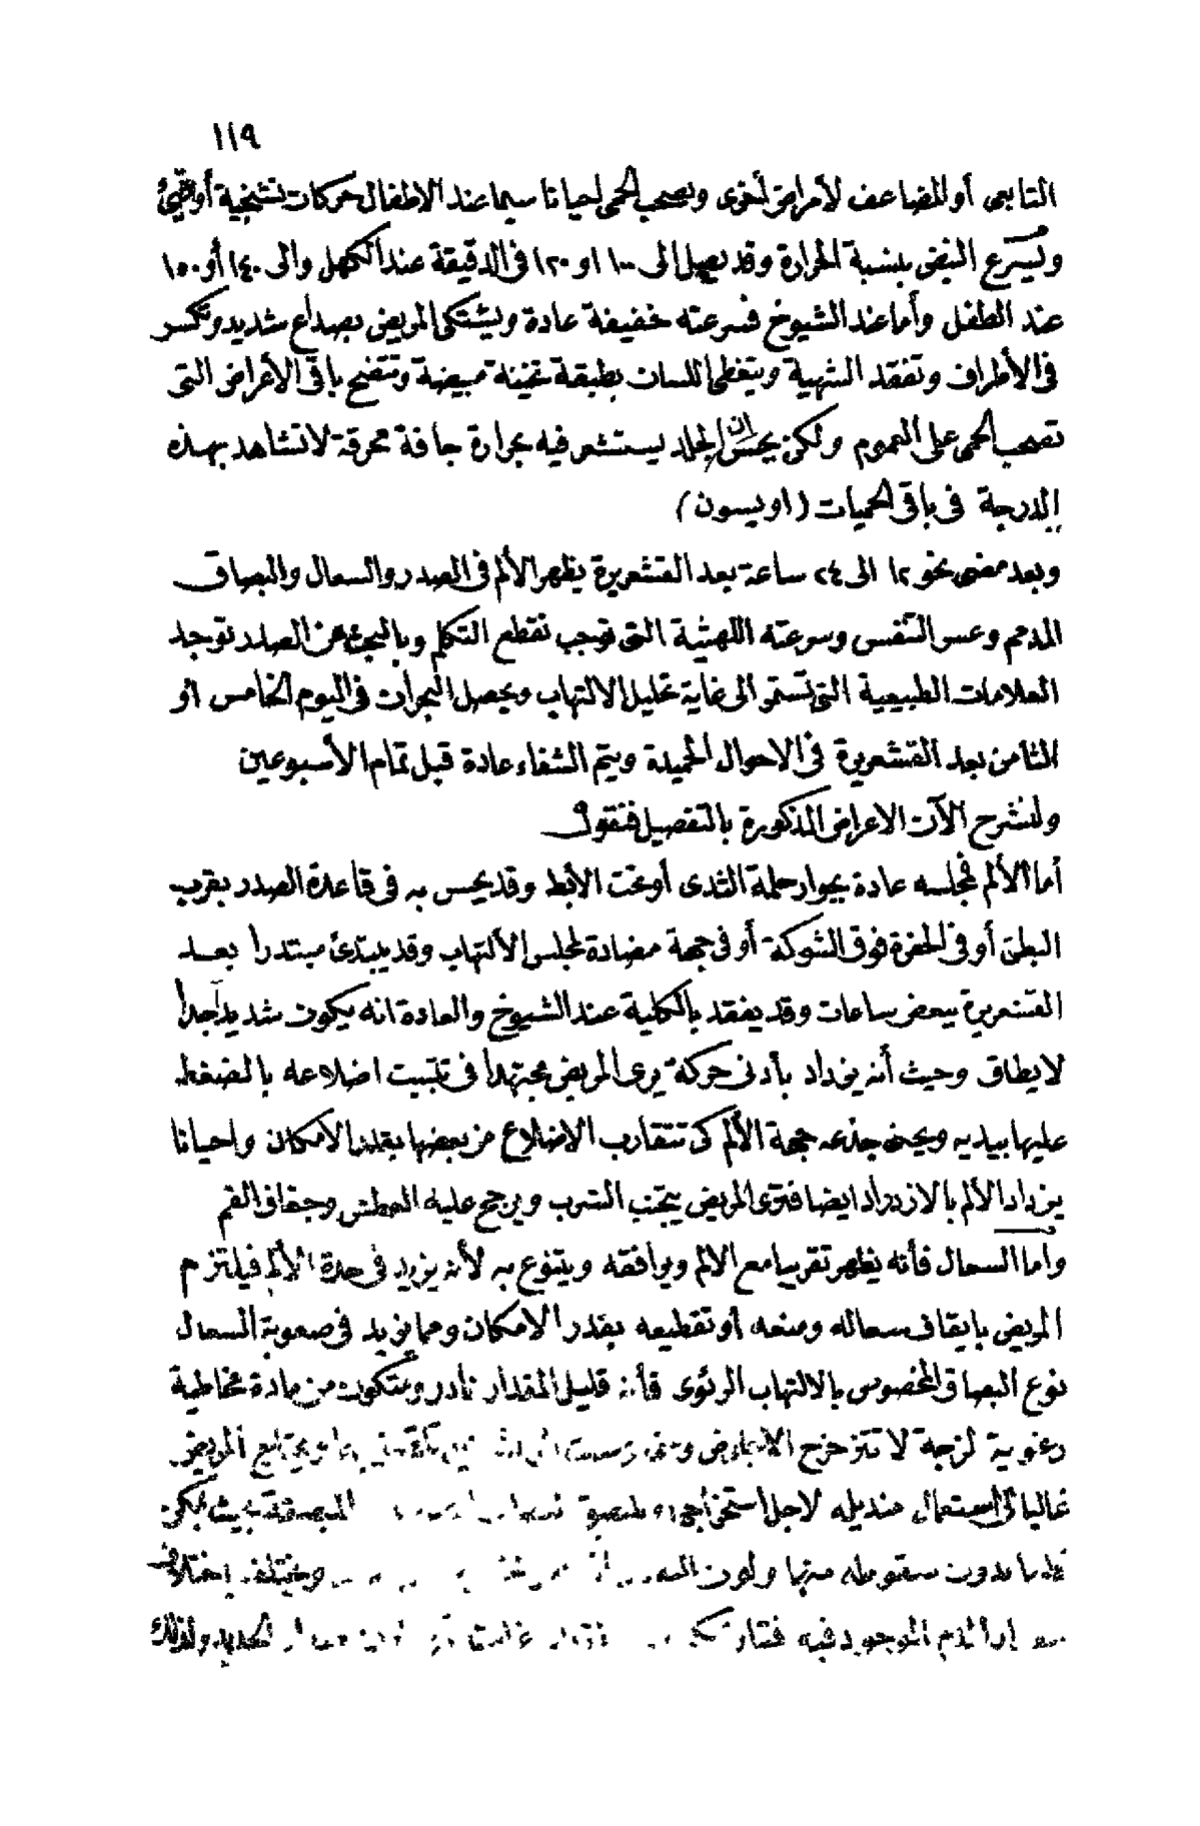 ١١٩
التابعى أو المضاعف لأمراض أخرى وتصحب الحمى احيانا سيما عند الاطفال حركات تشنجية أو قيئ
ويسرع النبض بنسبة الحرارة وقد يصل الى ١٠٠ او ١٢٠ فى الدقيقة عند الكهل والى ١٤٠ أو ١٥٠
عند الطفل وأما عند الشيوخ فسرعته خفيفة عادة ويشتكى المريض بصداع شديد وتكسر
فى الأطراف وتفقد الشهية ويتغطى اللسان بطبقة ثخينة مبيضة وتتضح باقى الأعراض التى
تصحب الحمى على العموم ولكن يحس ان الجلد يستشعر فيه بحرارة جافة محرقة لا تشاهد بهذه
الدرجة فى باقى الحميات (اويسون)
وبعد مضى نحو ١٢ الى ٢٤ ساعة بعد القشعريرة يظهر الألم فى الصدر والسعال والبصاق
المدمم وعسر التنفس وسرعته اللهثية التى توجب تقطع التكلم وبالبحث عن الصدر توجد
العلامات الطبيعية التى تستمر الى غاية تحليل الالتهاب ويحصل البحران فى اليوم الخامس او
الثامن بعد القشعريرة فى الاحوال الحميدة ويتم الشفاء عادة قبل تمام الأسبوعين
ولنشرح الآن الاعراض المذكورة بالتفصيل فنقول
أما الألم فمجلسه عادة بجوار حلمة الثدى أو تحت الأبط وقد يحس به فى قاعدة الصدر بقرب
البطن أو فى الحفرة فوق الشوكة أو فى جهة مضادة لمجلس الألتهاب وقد يبتدئ مبتدرا بعد
القشعريرة ببعض ساعات وقد يفقد بالكلية عند الشيوخ والعادة انه يكون شديدا جدا
لا يطاق وحيث أنه يزداد بأدنى حركة يرى المريض مجتهدا فى تثبيت اضلاعه بالضغط
عليها بيديه ويحنى جذعه جهة الألم كى تتقارب الاضلاع من بعضها بقدر الامكان واحيانا
يزداد الألم بالازدراد ايضا فترى المريض يتجنب الشرب ويرجح عليه العطش وجفاف الفم
وأما السعال فأنه يظهر تقريبا مع الالم ويوافقه ويتنوع به لأنه يزيد فى حدة الألم فيلتزم
المريض بايقاف سعاله ومنعه أو تقطيعه بقدر الامكان ومما يزيد فى صعوبة السعال
نوع البصاق المخصوص بالالتهاب الرئوى فأنه قليل المقدار نادر ومتكون من مادة مخاطية
رغوية لزجة لا تتزحزح الا ويحتاج المريض
غالبا الى استعمال منديله لاجل استخراجه المبصقة بحيث يمكن
قلبها بدون سقوطه منها ولون ويختلف باختلاف
الدم الموجود فيه فتارة الحديد ولذلك